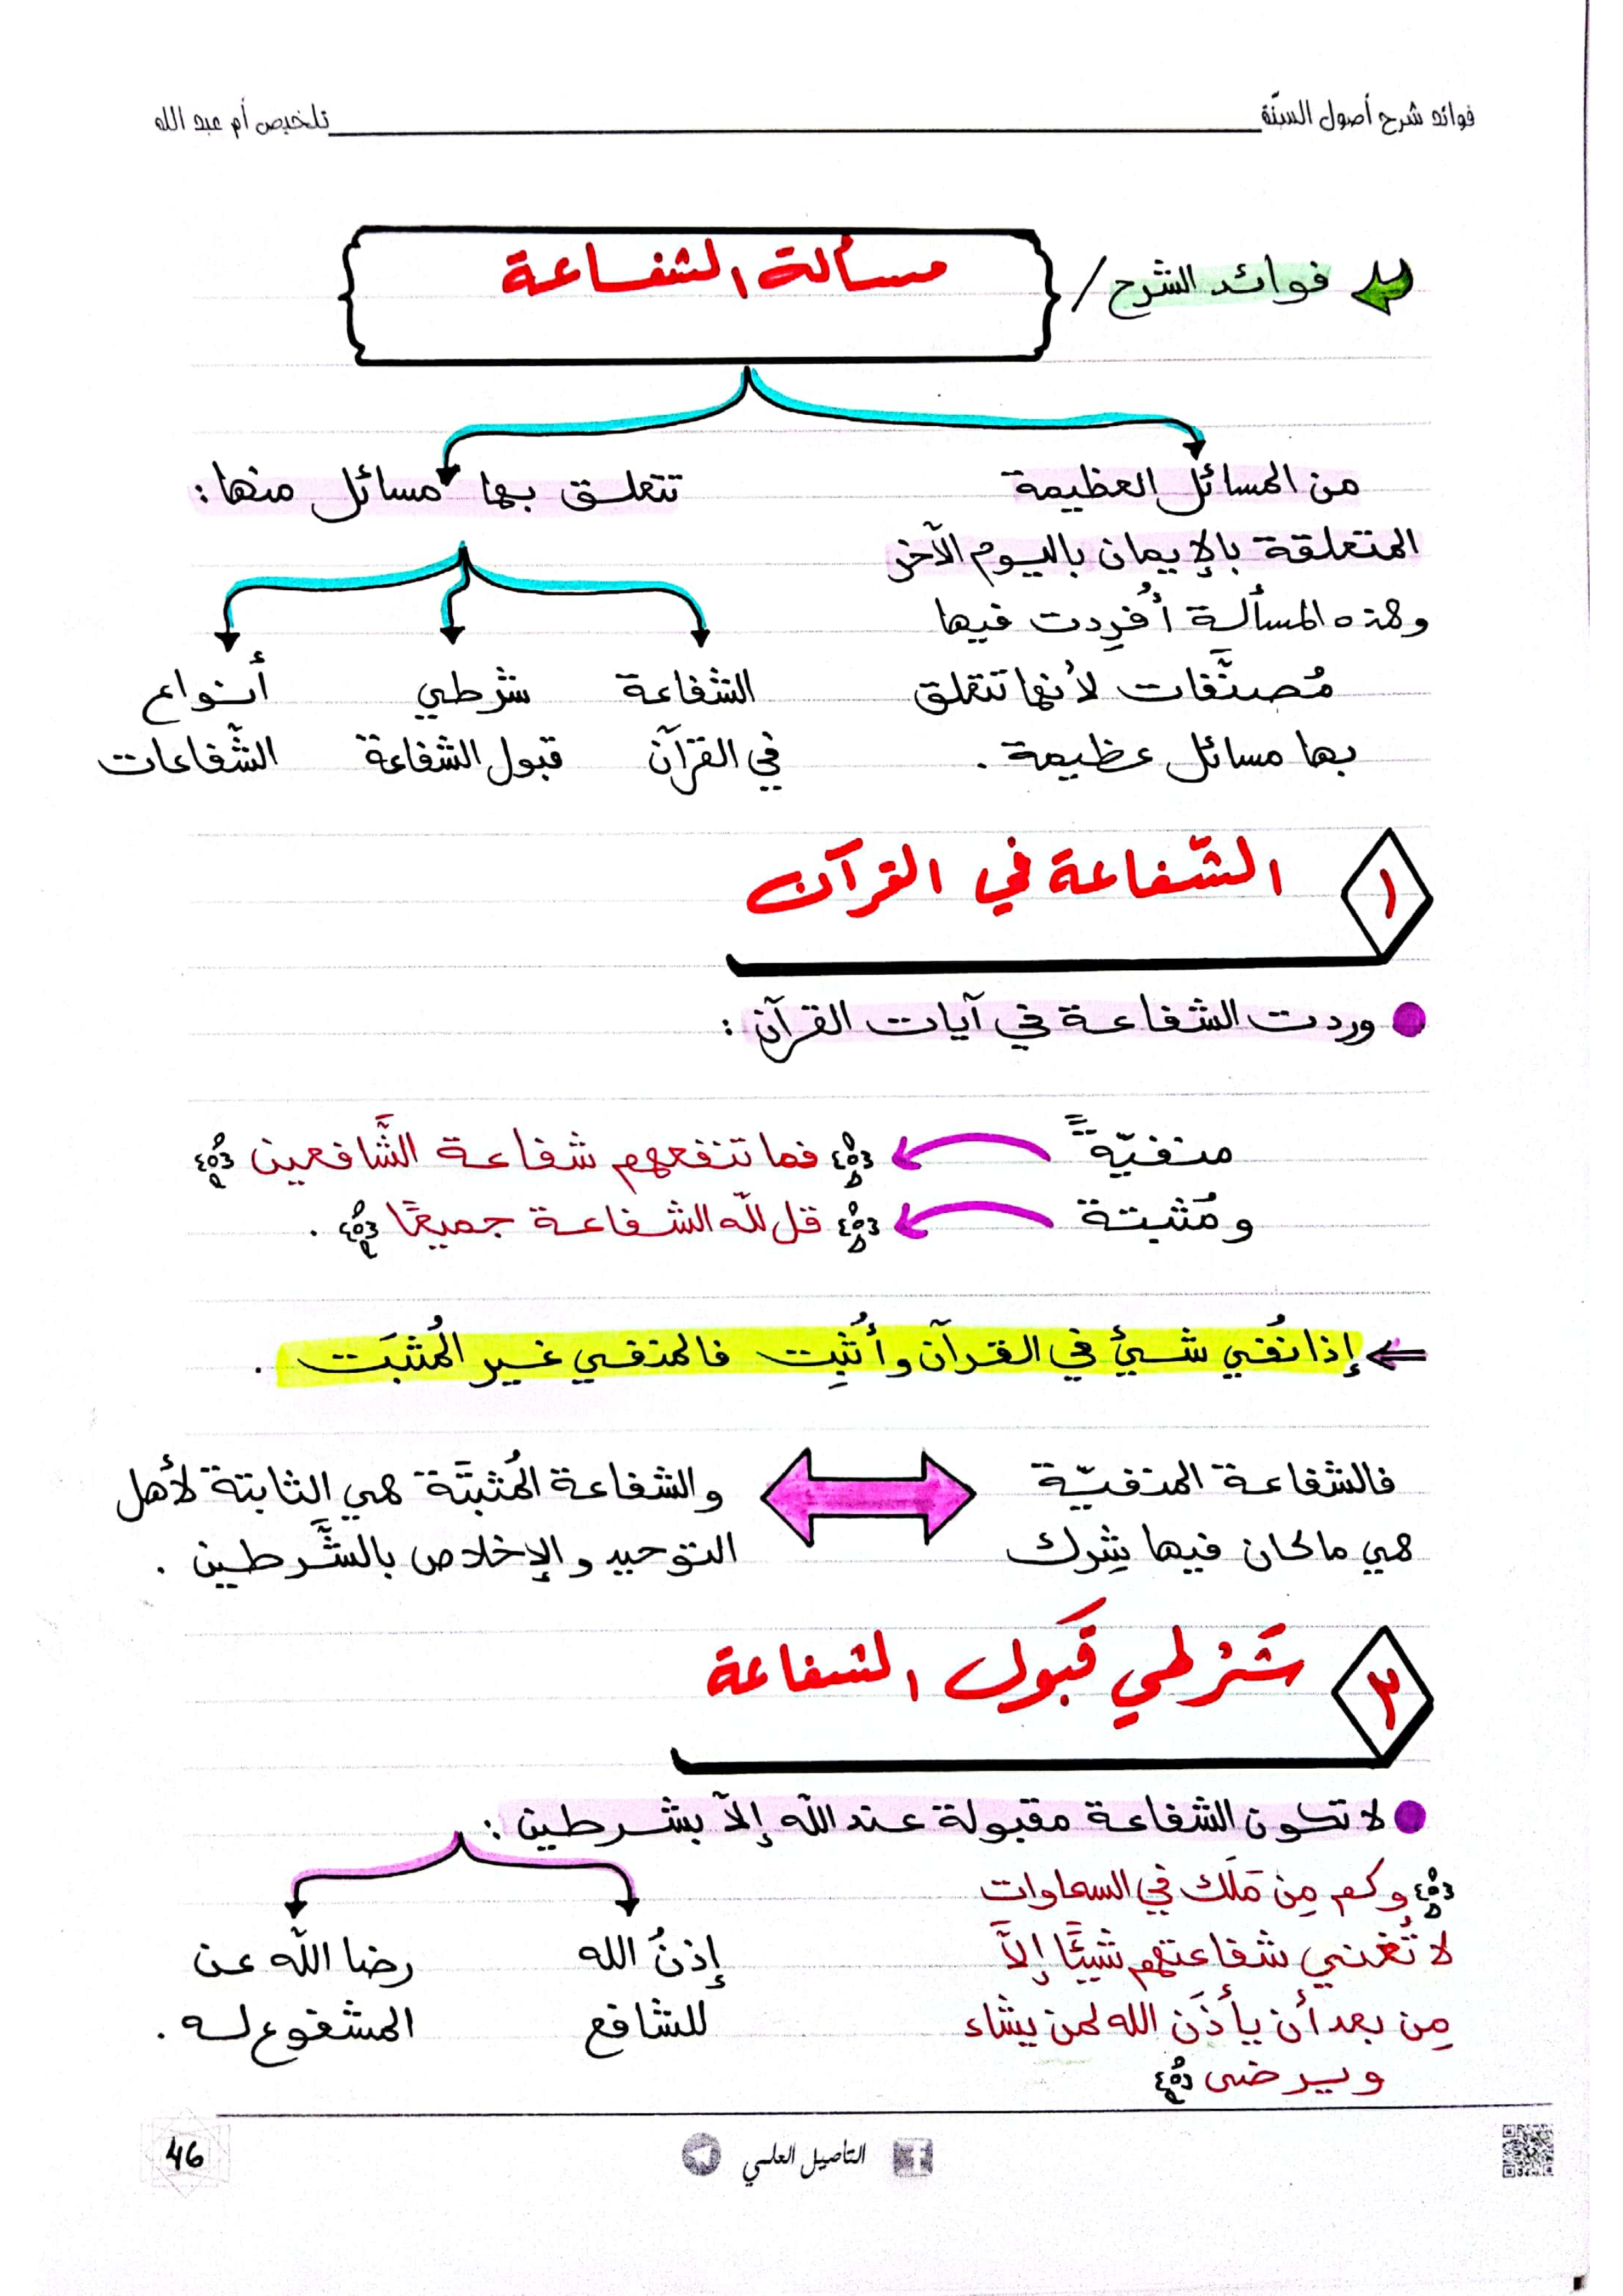 فوائد شرح أصول السنّة
تلخيص أم عبد الله
فوائد الشرح /
مسألة الشفاعة
من المسائل العظيمة
المتعلقة بالإيمان باليوم الآخر
وهذه المسألة أُفرِدت فيها
مُصنَّفات لأنها تتعلق
بها مسائل عظيمة .
تتعلق بها مسائل منها :
الشفاعة
في القرآن
شرطي
قبول الشفاعة
أنواع
الشّفاعات
١
الشّفاعة في القرآن
وردت الشفاعة في آيات القرآن :
منفيّة ﴿ فما تنفعهم شفاعة الشَّافعين ﴾
ومُثبتة ﴿ قل للّه الشفاعة جميعًا ﴾ .
إذا نُفي شيئ في القرآن وأُثبِت فالمنفي غير المُثبَت .
فالشفاعة المنفيّة
هي ما كان فيها شِرك
والشفاعة المُثبتَة هي الثابتة لأهل
التوحيد والإخلاص بالشَّرطين .
٢
شَرْطي قَبول الشفاعة
لا تكون الشفاعة مقبولة عند اللّه إلاّ بشرطين :
﴿ وكم مِن مَلَك في السماوات
لا تُغني شفاعتهم شيئًا إلاَّ
مِن بعد أن يأذَن الله لمن يشاء
ويرضى ﴾
إذنُ الله
للشافع
رضا اللّه عن
المشفوع له .
التأصيل العلمي
46